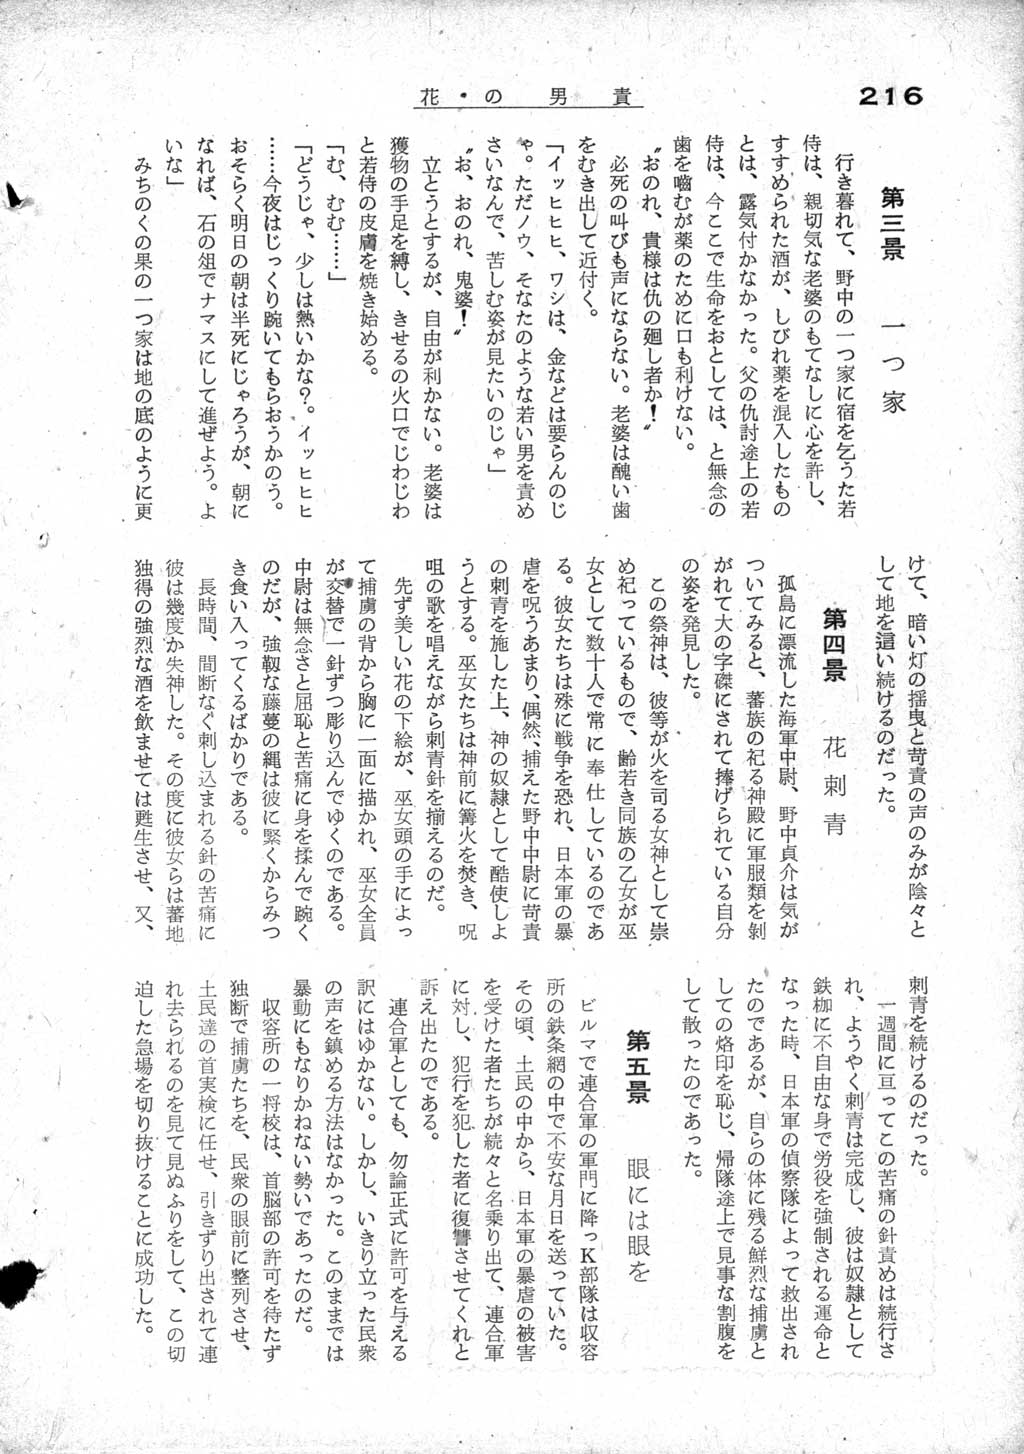 216
花・の男責
第三景　一つ家
　行き暮れて、野中の一つ家に宿を乞うた若
侍は、親切気な老婆のもてなしに心を許し、
すすめられた酒が、しびれ薬を混入したもの
とは、露気付かなかった。父の仇討途上の若
侍は、今ここで生命をおとしては、と無念の
歯を嚙むが薬のために口も利けない。
〝おのれ、貴様は仇の廻し者か！〟
　必死の叫びも声にならない。老婆は醜い歯
をむき出して近付く。
「イッヒヒヒ、ワシは、金などは要らんのじ
ゃ。ただノウ、そなたのような若い男を責め
さいなんで、苦しむ姿が見たいのじゃ」
〝お、おのれ、鬼婆！〟
　立とうとするが、自由が利かない。老婆は
獲物の手足を縛し、きせるの火口でじわじわ
と若侍の皮膚を焼き始める。
「む、むむ……」
「どうじゃ、少しは熱いかな？。イッヒヒヒ
……今夜はじっくり踠いてもらおうかのう。
おそらく明日の朝は半死にじゃろうが、朝に
なれば、石の俎でナマスにして進ぜよう。よ
いな」
　みちのくの果の一つ家は地の底のように更
けて、暗い灯の揺曳と苛責の声のみが陰々と
して地を這い続けるのだった。
第四景　花刺青
　孤島に漂流した海軍中尉、野中貞介は気が
ついてみると、蕃族の祀る神殿に軍服類を剝
がれて大の字磔にされて捧げられている自分
の姿を発見した。
　この祭神は、彼等が火を司る女神として崇
め祀っているもので、齢若き同族の乙女が巫
女として数十人で常に奉仕しているのであ
る。彼女たちは殊に戦争を恐れ、日本軍の暴
虐を呪うあまり、偶然、捕えた野中中尉に苛責
の刺青を施した上、神の奴隷として酷使しよ
うとする。巫女たちは神前に篝火を焚き、呪
咀の歌を唱えながら刺青針を揃えるのだ。
　先ず美しい花の下絵が、巫女頭の手によっ
て捕虜の背から胸に一面に描かれ、巫女全員
が交替で一針ずつ彫り込んでゆくのである。
中尉は無念さと屈恥と苦痛に身を揉んで踠く
のだが、強靱な藤蔓の縄は彼に緊くからみつ
き食い入ってくるばかりである。
　長時間、間断なく刺し込まれる針の苦痛に
彼は幾度か失神した。その度に彼女らは蕃地
独得の強烈な酒を飲ませては甦生させ、又、
刺青を続けるのだった。
　一週間に亘ってこの苦痛の針責めは続行さ
れ、ようやく刺青は完成し、彼は奴隷として
鉄枷に不自由な身で労役を強制される運命と
なった時、日本軍の偵察隊によって救出され
たのであるが、自らの体に残る鮮烈な捕虜と
しての烙印を恥じ、帰隊途上で見事な割腹を
して散ったのであった。
第五景　眼には眼を
　ビルマで連合軍の軍門に降っK部隊は収容
所の鉄条網の中で不安な月日を送っていた。
その頃、土民の中から、日本軍の暴虐の被害
を受けた者たちが続々と名乗り出て、連合軍
に対し、犯行を犯した者に復讐させてくれと
訴え出たのである。
　連合軍としても、勿論正式に許可を与える
訳にはゆかない。しかし、いきり立った民衆
の声を鎮める方法はなかった。このままでは
暴動にもなりかねない勢いであったのだ。
　収容所の一将校は、首脳部の許可を待たず
独断で捕虜たちを、民衆の眼前に整列させ、
土民達の首実検に任せ、引きずり出されて連
れ去られるのを見て見ぬふりをして、この切
迫した急場を切り抜けることに成功した。